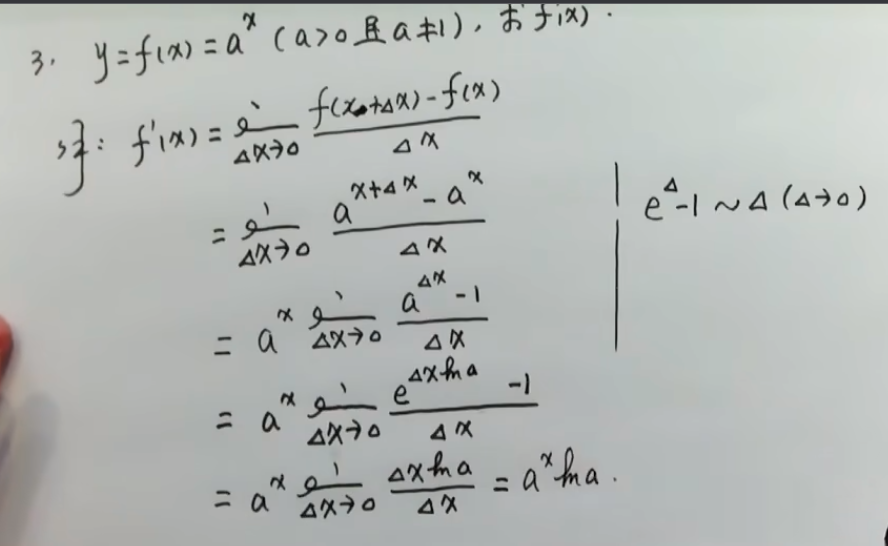 3. y=f(x)=a^x (a>0且a≠1), 求f'(x).
解: f'(x) = lim_{Δx→0} \frac{f(x+Δx)-f(x)}{Δx}
= lim_{Δx→0} \frac{a^{x+Δx}-a^x}{Δx}
e^Δ-1~Δ(Δ→0)
= a^x lim_{Δx→0} \frac{a^{Δx}-1}{Δx}
= a^x lim_{Δx→0} \frac{e^{Δx ln a}-1}{Δx}
= a^x lim_{Δx→0} \frac{Δx ln a}{Δx} = a^x ln a.